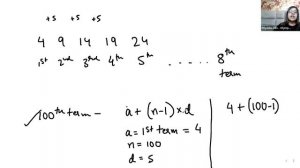 +5 +5 +5
4 9 14 19 24
1st 2nd 3rd 4th 5th ..... 8th
term
✓100th term - a + (n-1) × d
a = 1st term = 4
n = 100
d = 5
4 + (100-1)